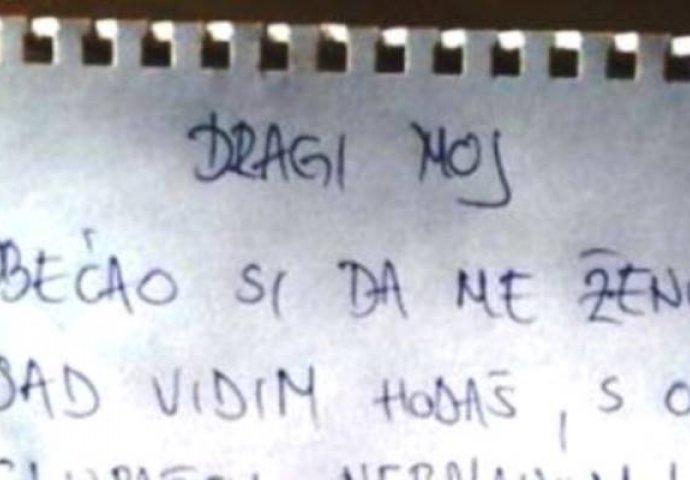 DRAGI MOJ
BEĆAO SI DA ME ŽENI
SAD VIDIM HODAŠ, S O